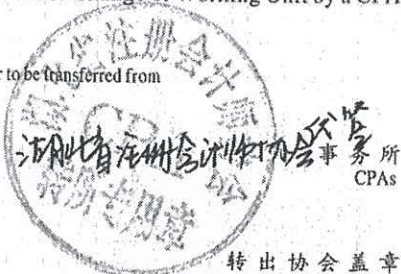 Working Unit by a CPA
r to be transferred from
湖北省注册会计师协会代管事务所
CPAs
转出协会盖章